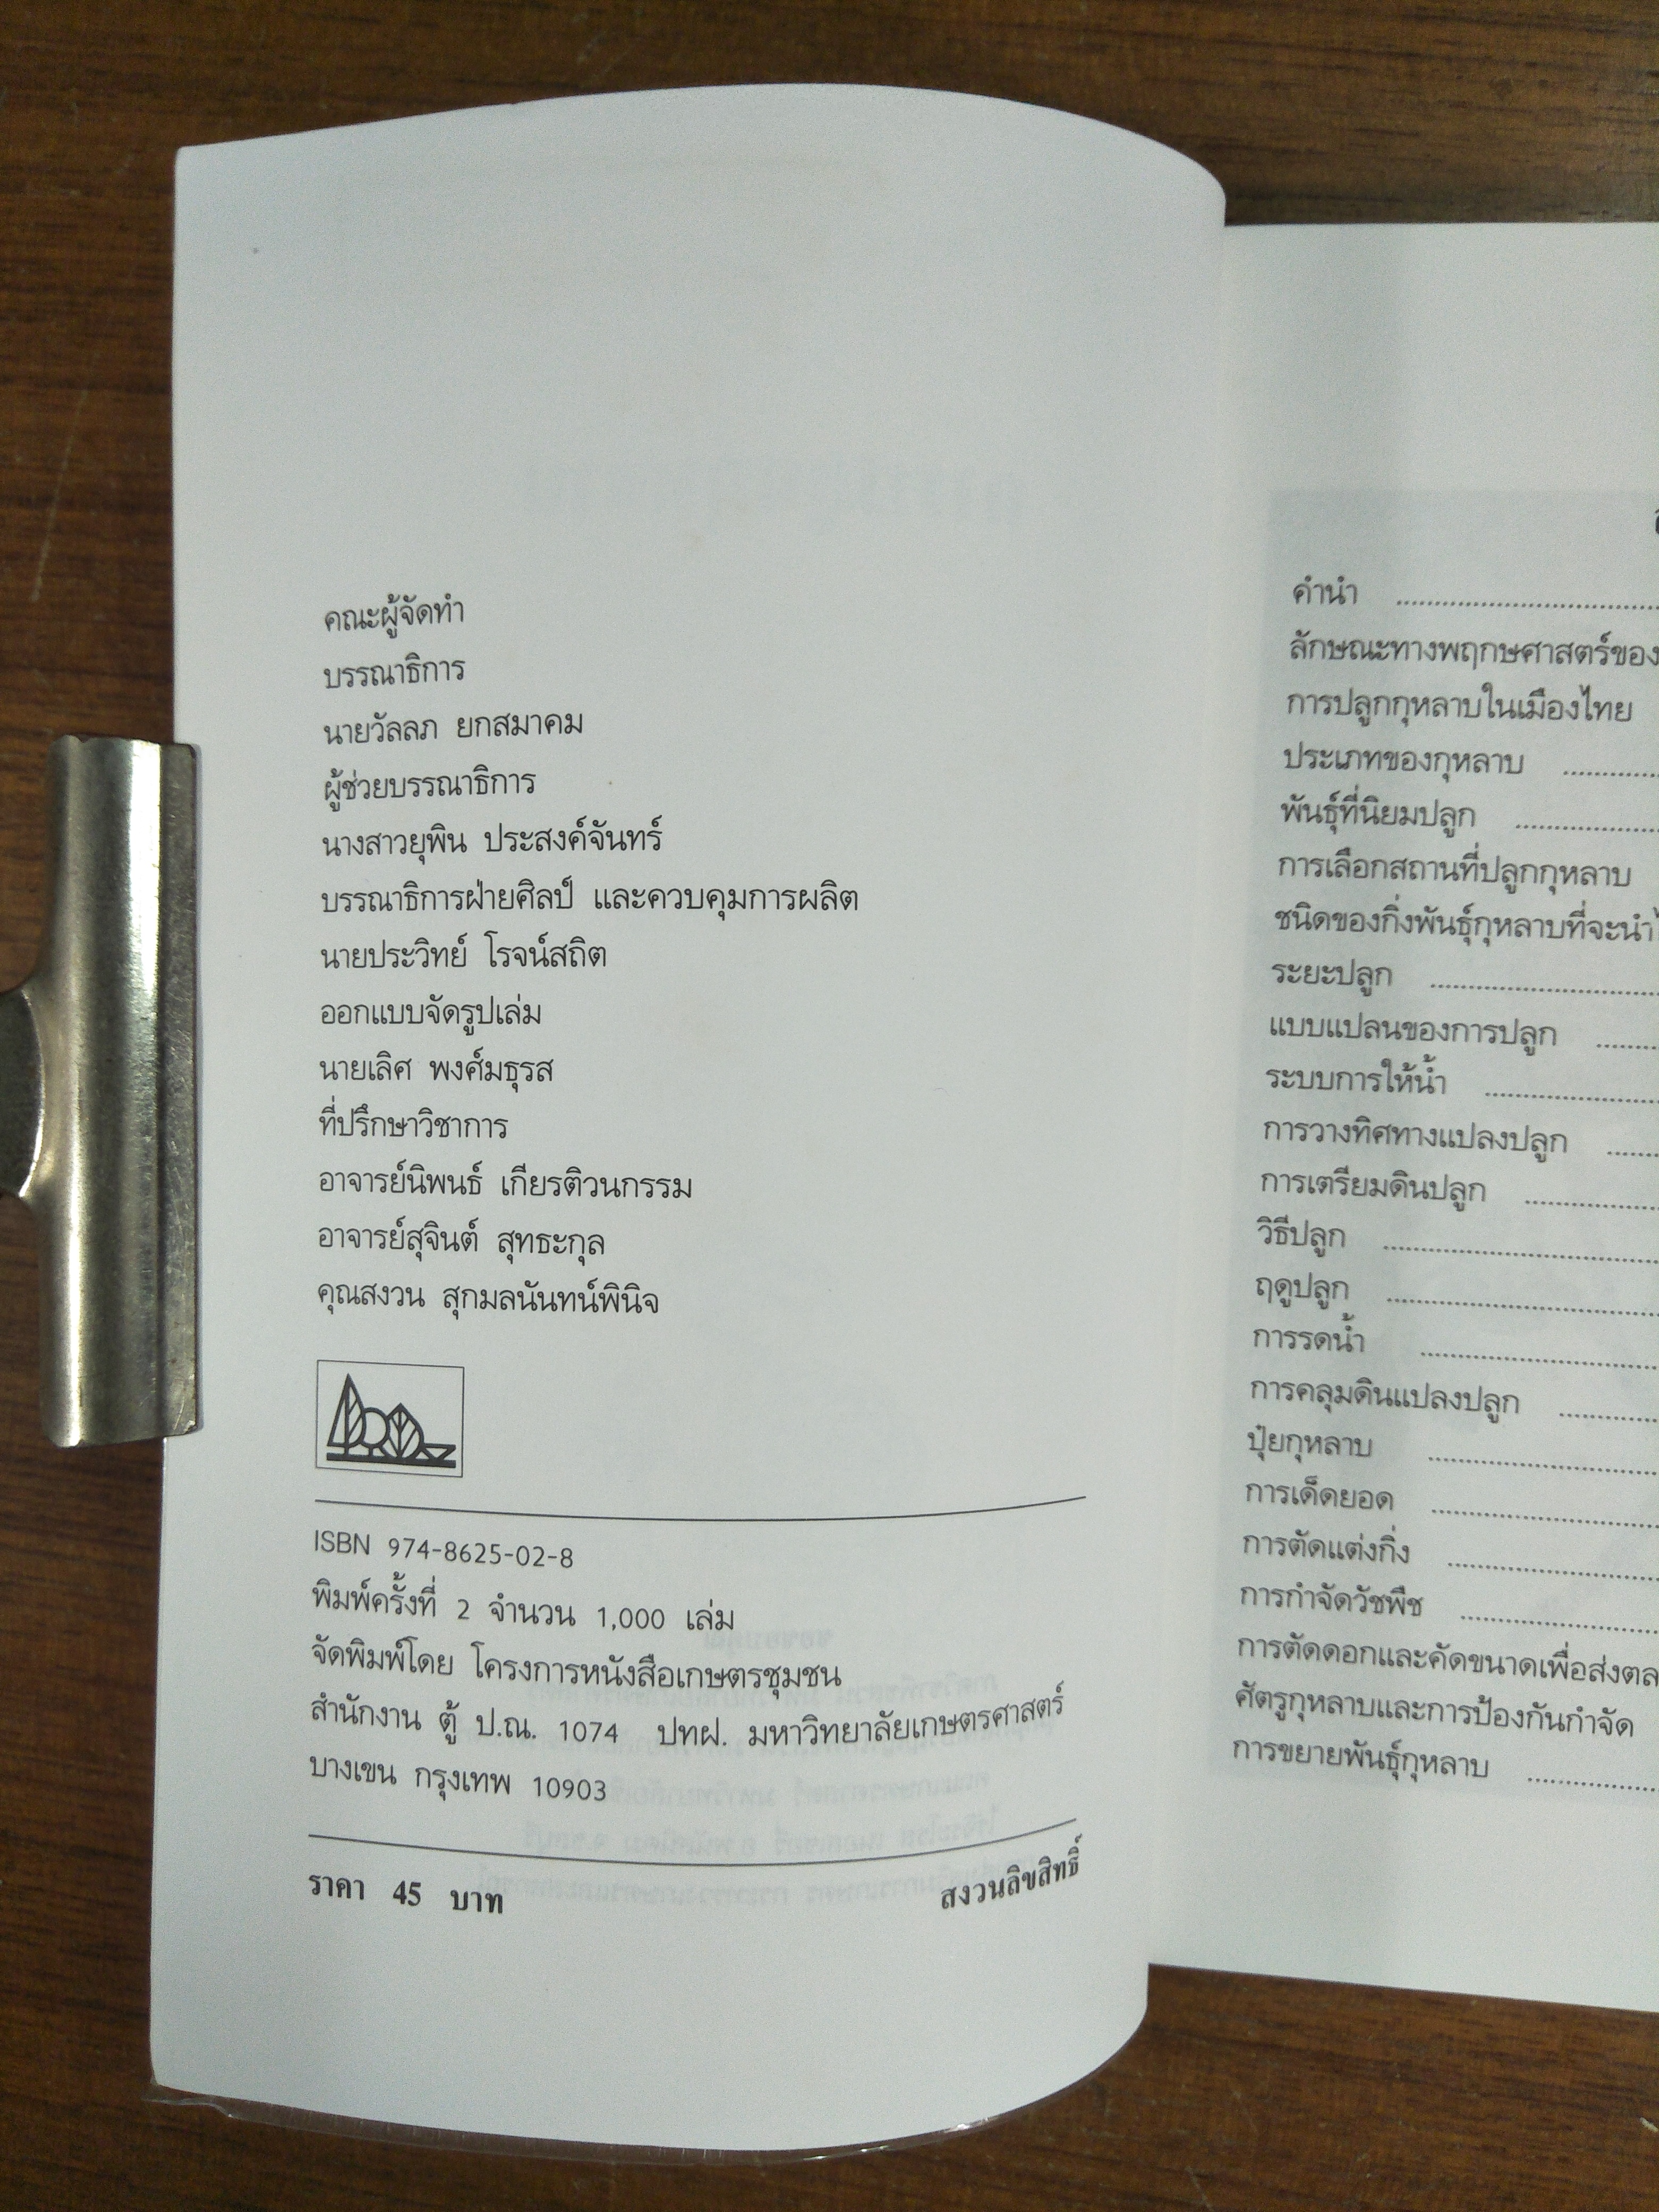 คณะผู้จัดทำ
บรรณาธิการ
นายวัลลภ ยกสมาคม
ผู้ช่วยบรรณาธิการ
นางสาวยุพิน ประสงค์จันทร์
บรรณาธิการฝ่ายศิลป์ และควบคุมการผลิต
นายประวิทย์ โรจน์สถิต
ออกแบบจัดรูปเล่ม
นายเลิศ พงศ์มธุรส
ที่ปรึกษาวิชาการ
อาจารย์นิพนธ์ เกียรติวนกรรม
อาจารย์สุจินต์ สุทธะกุล
คุณสงวน สุกมลนันทน์พินิจ
ISBN 974-8625-02-8
พิมพ์ครั้งที่ 2 จำนวน 1,000 เล่ม
จัดพิมพ์โดย โครงการหนังสือเกษตรชุมชน
สำนักงาน ตู้ ป.ณ. 1074 ปทฝ. มหาวิทยาลัยเกษตรศาสตร์
บางเขน กรุงเทพ 10903
ราคา 45 บาท สงวนลิขสิทธิ์
คำนำ
ลักษณะทางพฤกษศาสตร์ของ
การปลูกกุหลาบในเมืองไทย
ประเภทของกุหลาบ
พันธุ์ที่นิยมปลูก
การเลือกสถานที่ปลูกกุหลาบ
ชนิดของกิ่งพันธุ์กุหลาบที่จะนำ
ระยะปลูก
แบบแปลนของการปลูก
ระบบการให้น้ำ
การวางทิศทางแปลงปลูก
การเตรียมดินปลูก
วิธีปลูก
ฤดูปลูก
การรดน้ำ
การคลุมดินแปลงปลูก
ปุ๋ยกุหลาบ
การเด็ดยอด
การตัดแต่งกิ่ง
การกำจัดวัชพืช
การตัดดอกและคัดขนาดเพื่อส่งตล
ศัตรูกุหลาบและการป้องกันกำจัด
การขยายพันธุ์กุหลาบ